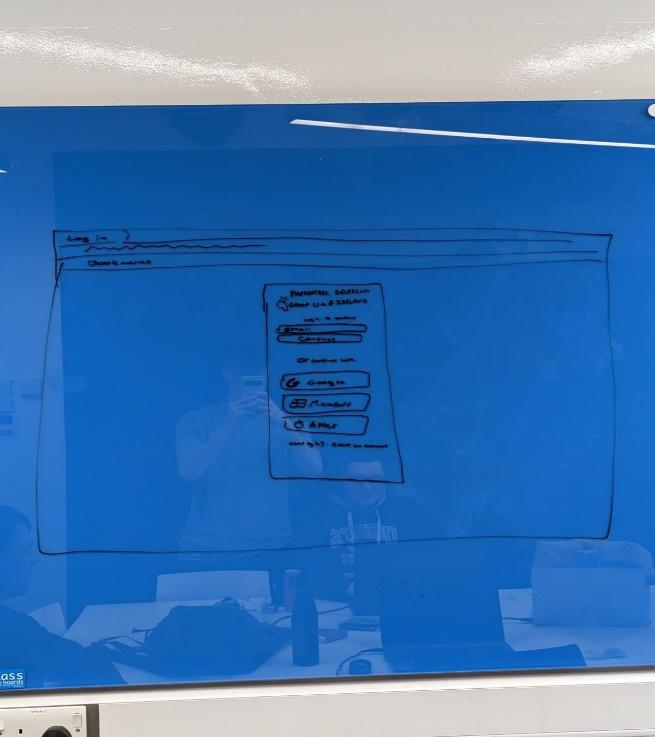 Log in
Bookmarks
PAEDIATRIC DELERIUM
GROUP UK & IRELAND
Log in to continue
Email
Continue
Or continue with
Google
Microsoft
APPLE
Can't log in? · Create an account